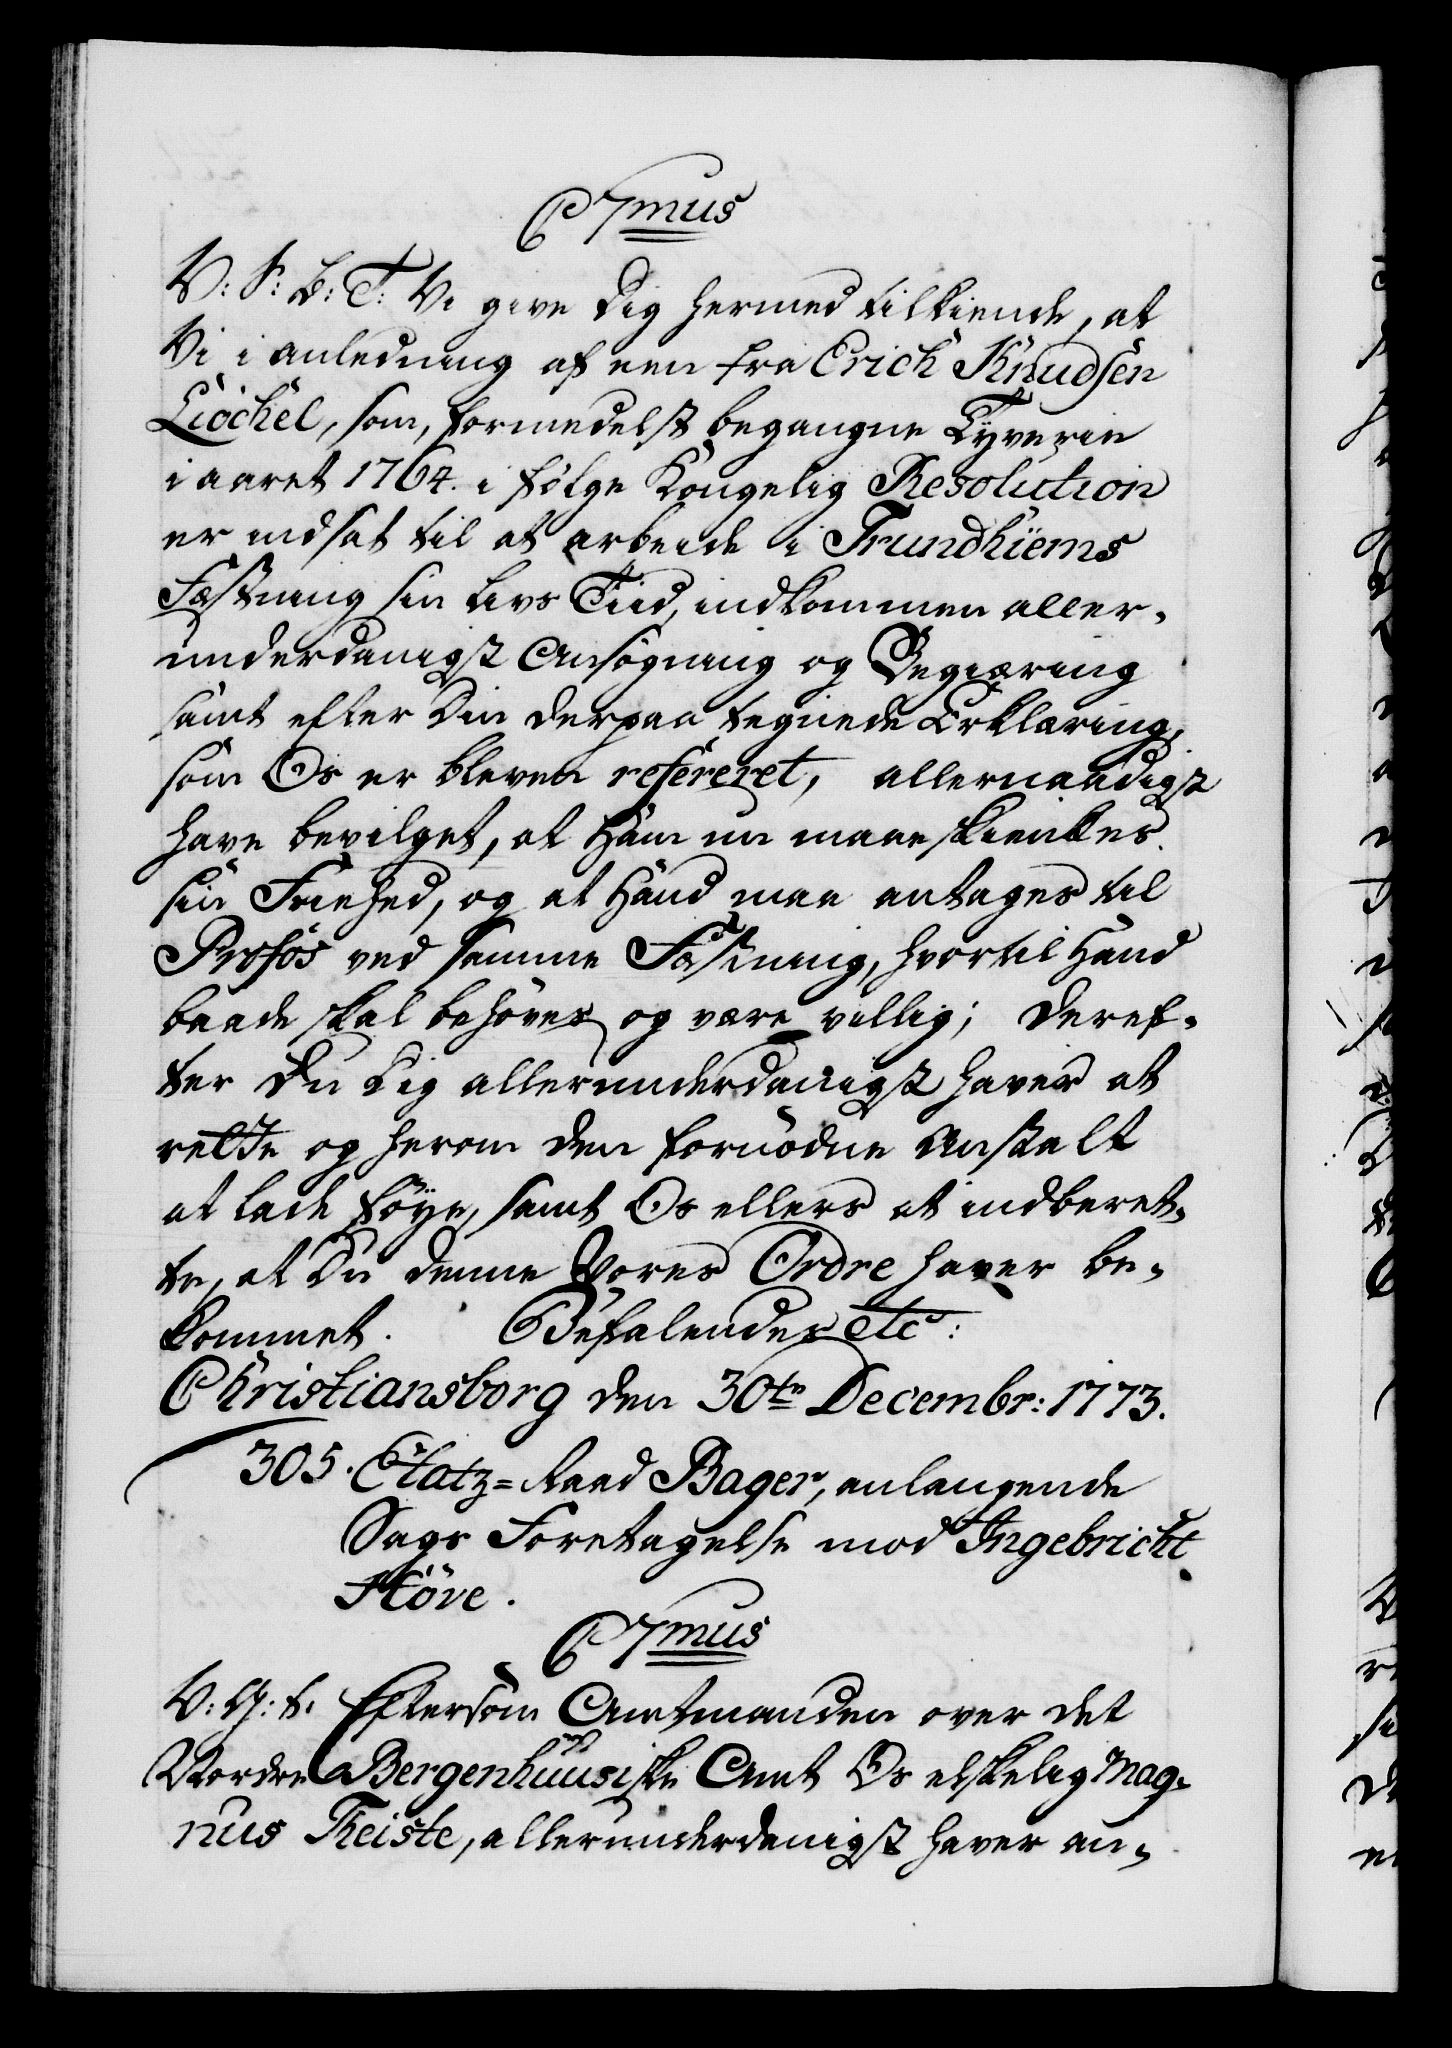 C 7mus
V: S: B: T: Vi give Dig hermed tilkiende, at
Vi i anledning af een fra Erich Knudsen
Liöchel, som, formedelst begangne Tyverie
i aaret 1764. i følge Kongelig Resolution
er indsat til at arbeide i Trundhiems
Fæstning sin Livs Tiid, indkommen aller-
underdanigst Ansøgning og Begiæring
samt efter Din derpaa tegnede Erklæring,
som Os er bleven refereret, allernaadigst
have bevilget, at Ham nu maae skienkes
sin Friehed, og at Hand maa antages til
Profos ved samme Fæstning, hvortil Hand
baade skal behøves og være villig; deref-
ter Du Dig allerunderdanigst haver at
rette og herom den fornødne Anstalt
at lade føye, samt Os ellers at indberet-
te, at Du denne Vores Ordre haver be-
kommet. Befalendes etc:
Christiansborg den 30te Decembr: 1773.
305. Etatz=Raad Bager, anlangende
Sags Foretagelse mod Ingebricht
Höve.
C 7mus
V: G: t. Eftersom Amtmanden over det
Nordre Bergenhuusiske Amt Os elskelig Mag-
nus Theiste, allerunderdanigst haver an-